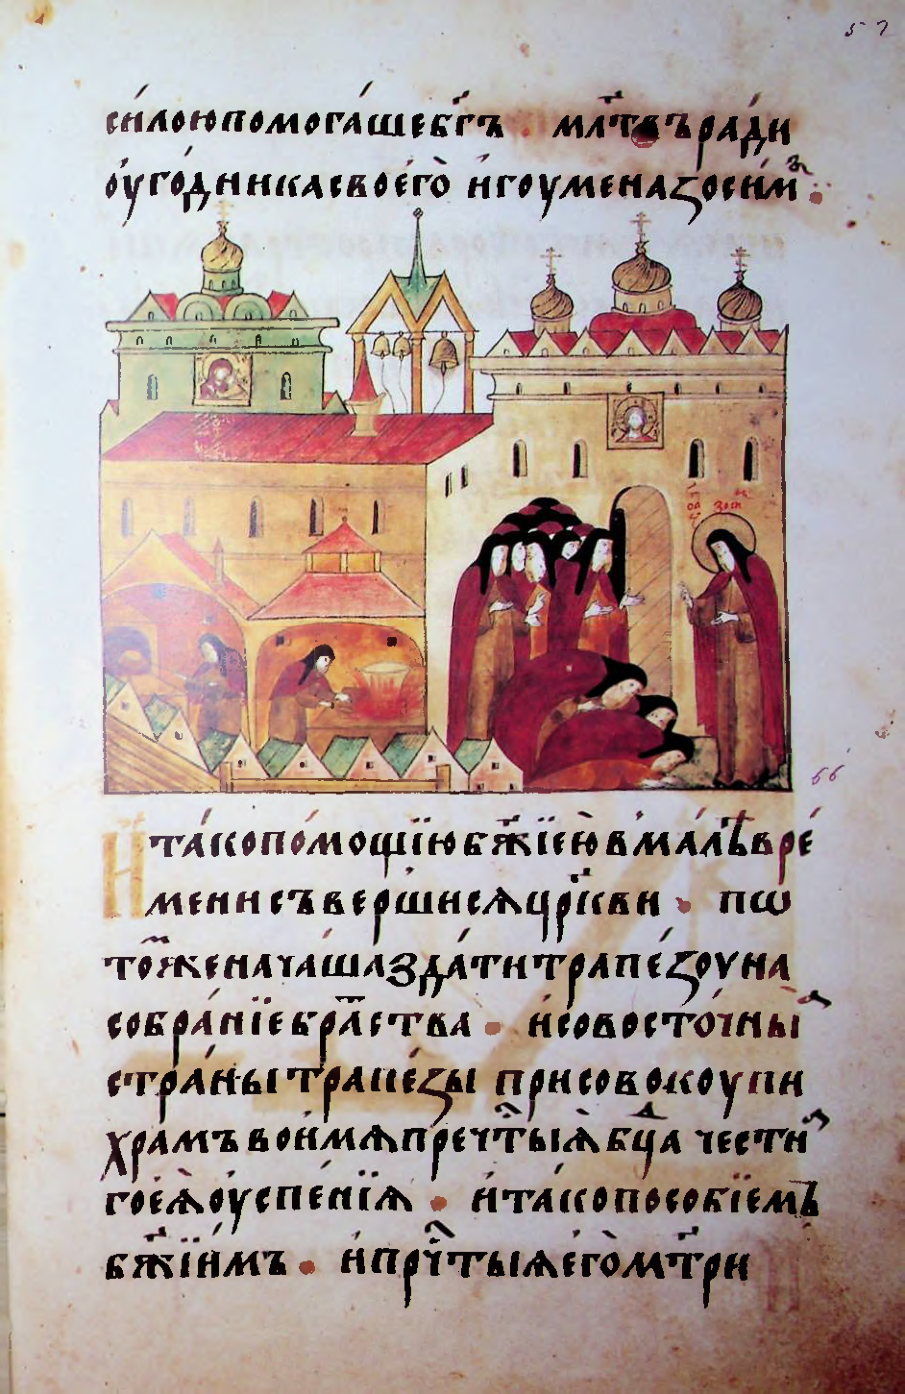 57
си́лою помога́ше бг҃ъ . мл҃твъ ра́ди
оу҆го́дника своего̀ и҆гоумена зоси́мꙑ .
прⷣп зоси
66
И҆ та́ко по́мощїю бж҃їею̀ в ма́лѣ вре́
мени съверши́ся цр҃кви . пѡ
то́мже нача́ша зда́ти трапе́зоу на
собра́нїе бра́тства . и҆ со восто́чныꙗ
стра́ны трапе́зы присовокоупи
храмъ во и҆мѧ пречⷭ҇тыѧ бцⷣа честна
го еѧ̀ оу҆спе́нїѧ . и҆ та́ко пособїемъ
бж҃їимъ . и҆ прⷱ҇тыѧ его̀ мт҃ри